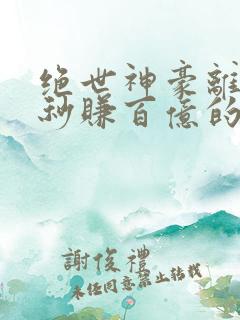 绝世神豪離
秒賺百億的
謝俊禮
未经同意禁止转载